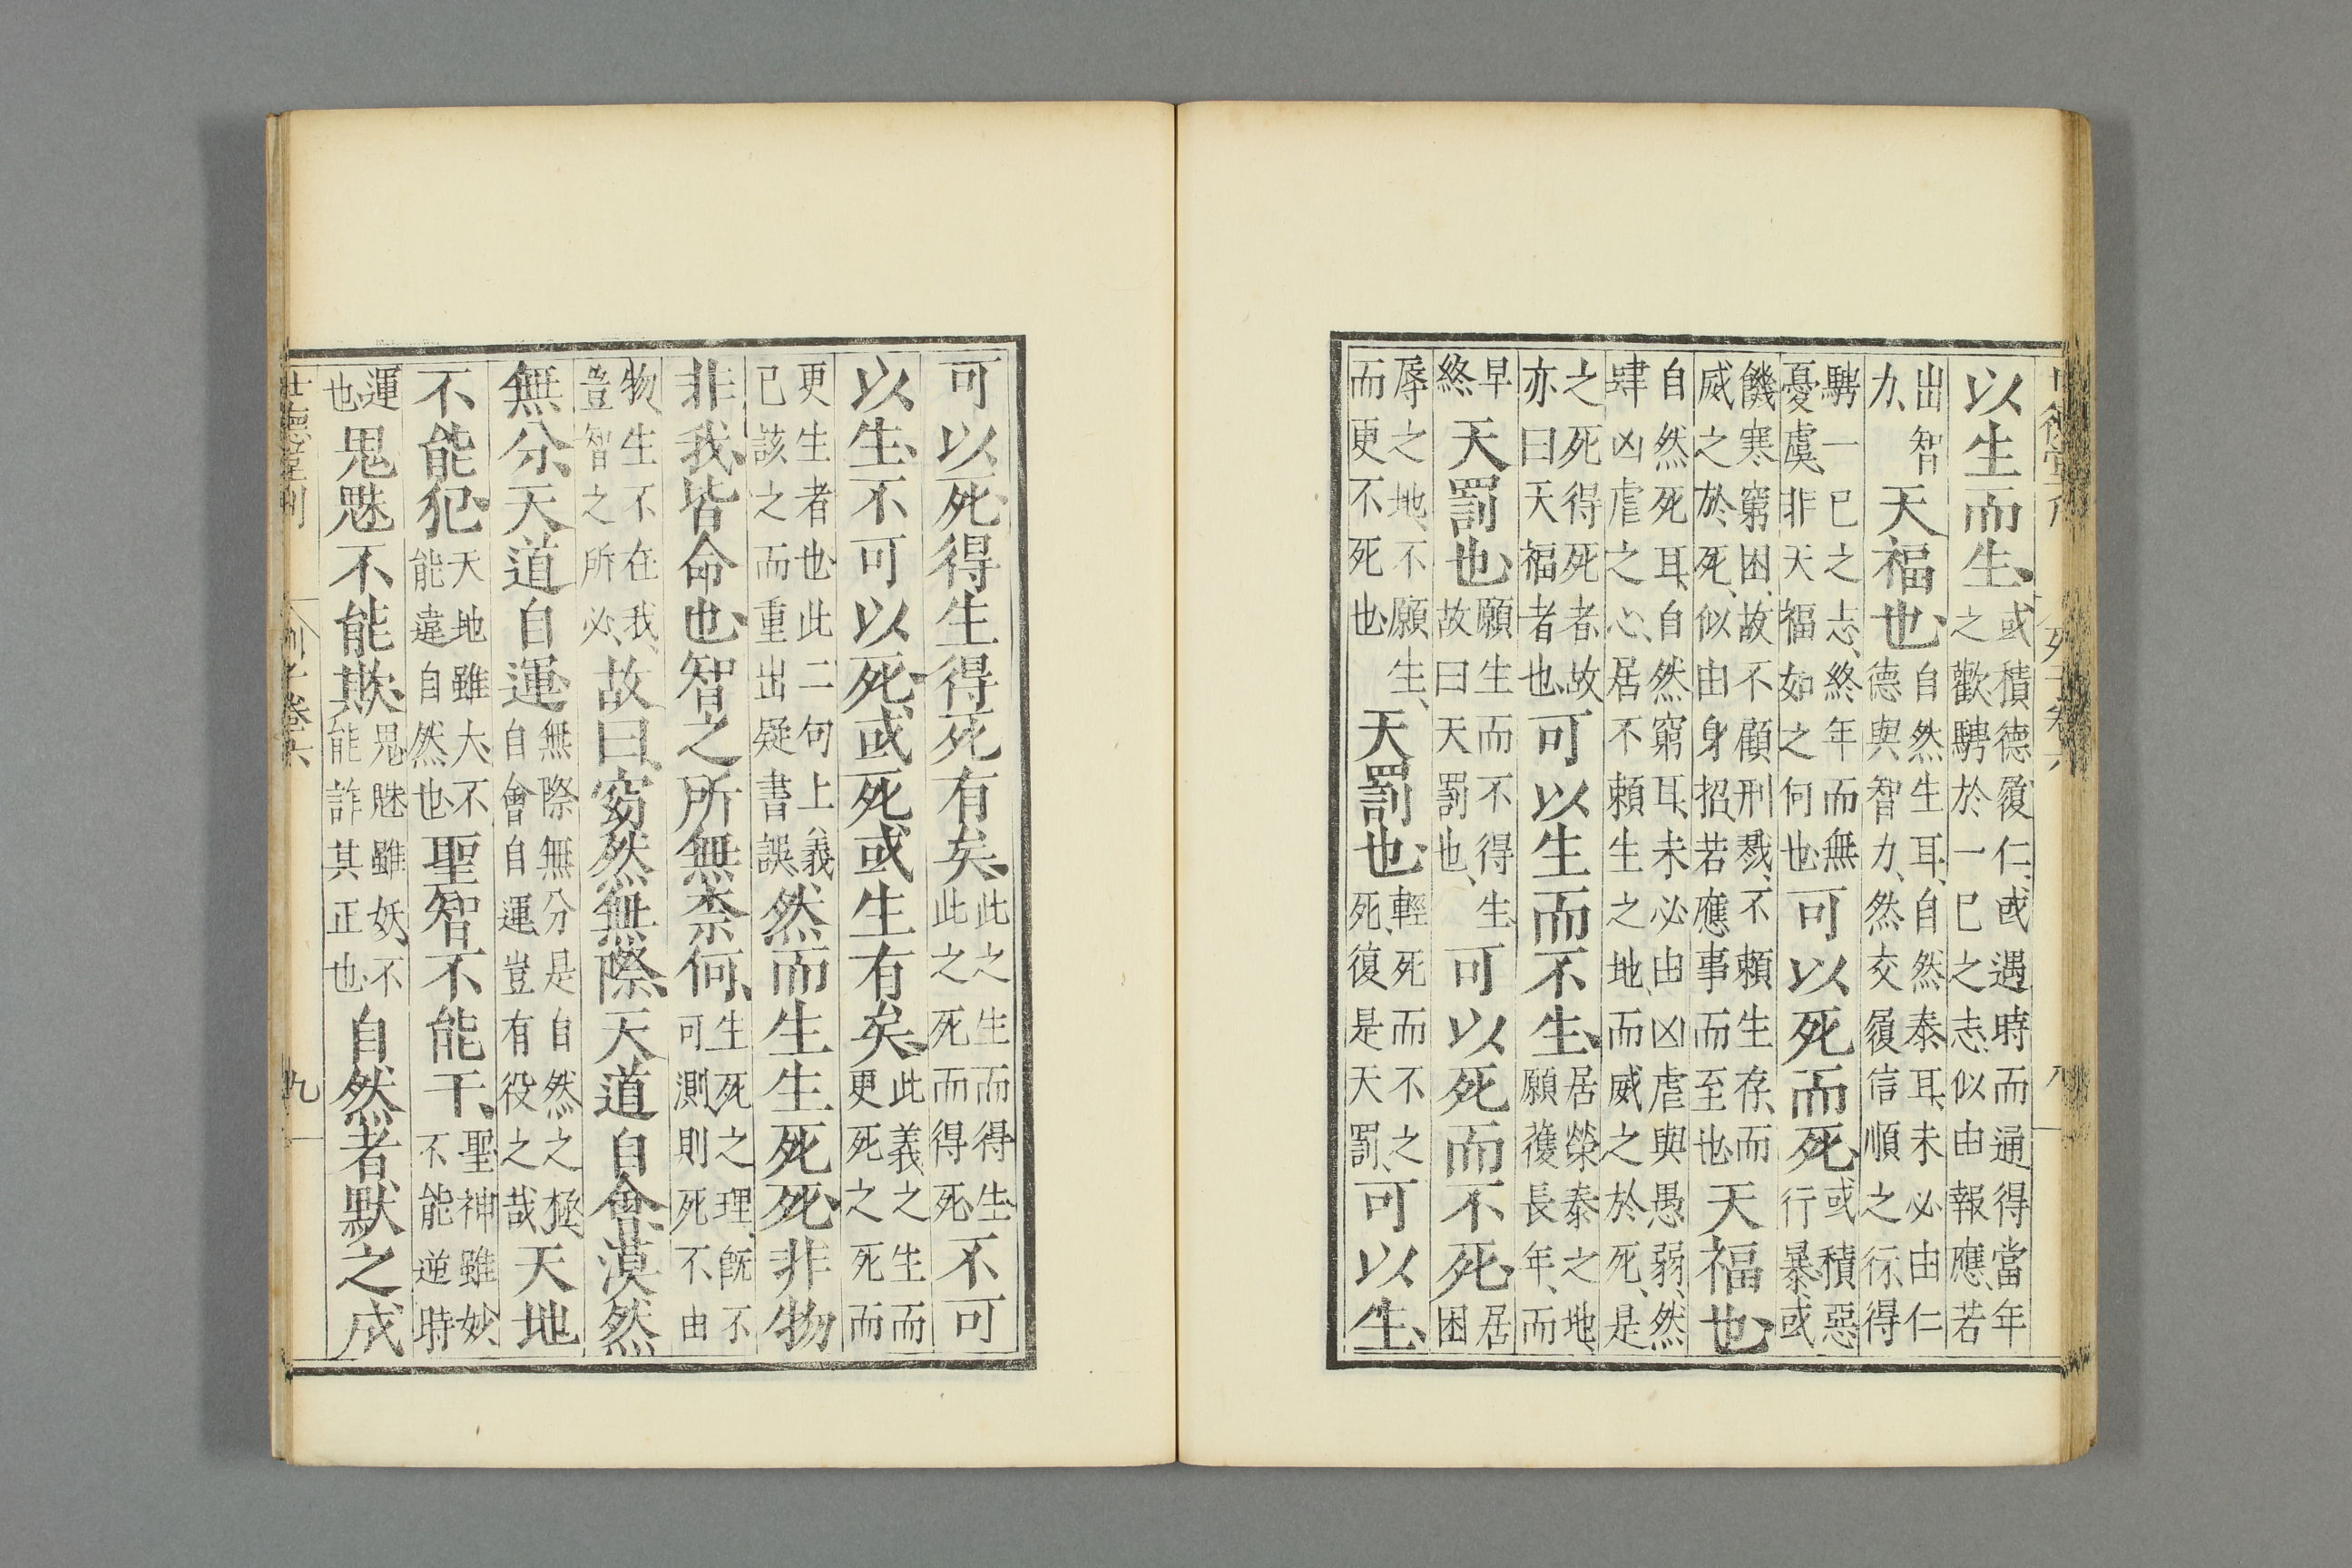 以生而生、或積德履仁、或遇時而通得當年之歡騁於一巳之志、似由報應、若
出智力、天福也、自然生耳、自然泰耳、未必由仁德與智力、然交履信順之行、得
騁一巳之志、終年而無憂虞、非天福如之何也、可以死而死、或積惡行暴、或
饑寒窮困、故不顧刑戮、不賴生存、而威之於死、似由身招、若應事而至也、天福也、
自然死耳、自然窮耳、未必由凶虐與愚弱、然肆凶虐之心、居不賴生之地、而威之於死、是
之死得死者、故亦曰天福者也、可以生而不生、居榮泰之地、願獲長年、而
早終天罰也、願生而不得生故曰天罰也、可以死而不死、居困
辱之地、不願生、而更不死也、天罰也、輕死而不之死、復是天罰、可以生、
可以死、得生得死有矣、此之生而得生、此之死而得死、不可
以生、不可以死、或死或生有矣、此義之生而更死之死而
更生者也、此二句上義已該之而重出疑書誤然而生生死死、非物
非我、皆命也、智之所無柰何、生死之理、旣不可測、則死不由
物、生不在我、豈智之所必、故曰、窈然無際、天道自會、漠然
無分、天道自運、無際無分是自然之極自會自運豈有役之哉天地
不能犯、天地雖大、不能違自然也、聖智不能干、聖神雖妙不能逆時
運也、鬼魅不能欺、鬼魅雖妖、不能詐其正也、自然者默之成
世德堂刊
九